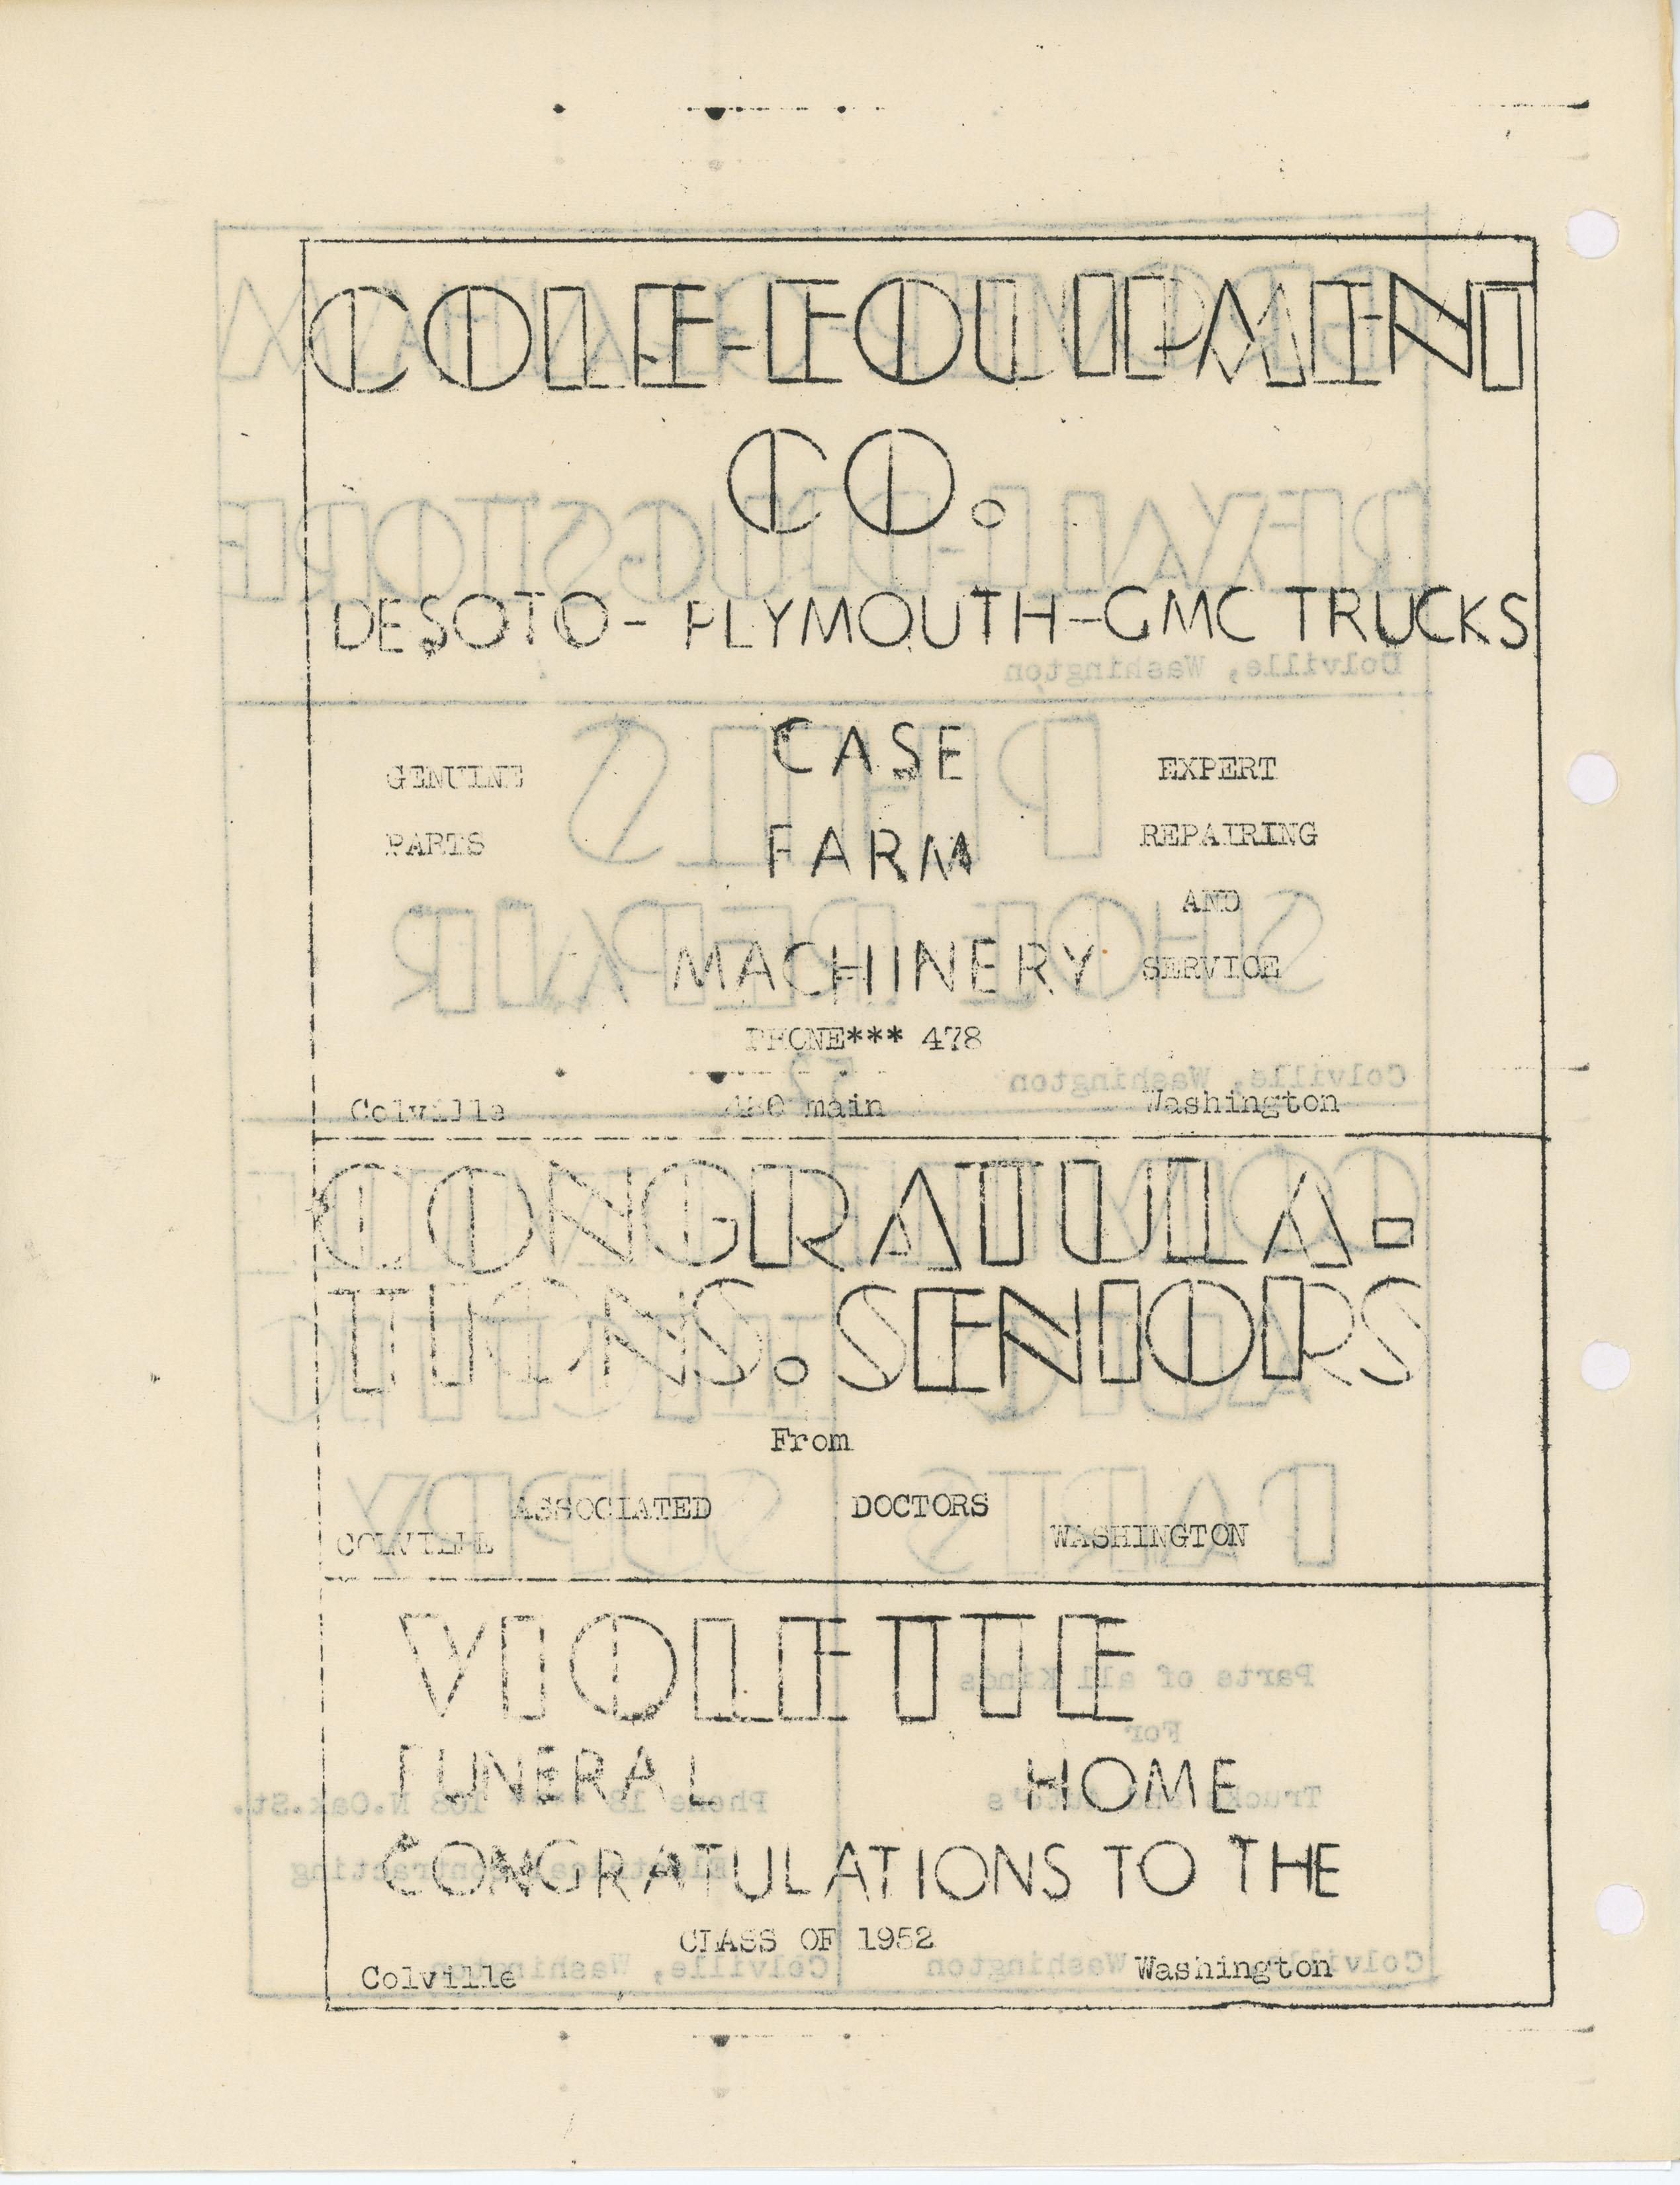 COLE-EQUIPMENT
CO.
DESOTO- PLYMOUTH-GMC TRUCKS
GENUINE CASE EXPERT
PARTS FARM REPAIRING
AND
MACHINERY SERVICE
PHONE*** 478
Colville main Washington
CONGRATULA-
TIONS. SENIORS
From
ASSOCIATED DOCTORS
COLVILLE WASHINGTON
VIOLETTE
FUNERAL HOME
CONGRATULATIONS TO THE
CLASS OF 1952
Colville Washington